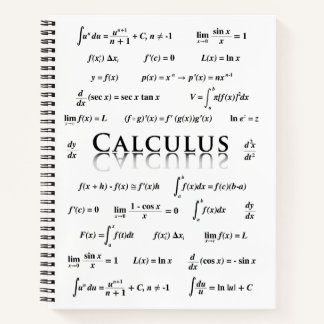 ∫uⁿ du = uⁿ⁺¹/n + 1 + C, n ≠ -1 lim x→0 sin x/x = 1
f(xᵢ*) Δxᵢ f'(c) = 0 L(x) = ln x
y = f(x) p(x) = xⁿ → p'(x) = nxⁿ⁻¹
d/dx (sec x) = sec x tan x V = ∫ₐᵇ π[f(x)]²dx
lim x→c f(x) = L (f∘g)'(x) = f'(g(x))g'(x) ln eᶻ = z
dy/dx CALCULUS d²x/dt²
f(x + h) - f(x) ≅ f'(x)h ∫ₐᵇ f(x)dx = f(c)(b-a)
f'(c) = 0 lim x→0 1 - cos x/x = 0 ∫ₐᵇ f(x)dx dy/dx
F(x) = ∫ₐˣ f(t)dt f(xᵢ*) Δxᵢ lim x→c f(x) = L
lim x→0 sin x/x = 1 L(x) = ln x d/dx (cos x) = - sin x
∫uⁿ du = uⁿ⁺¹/n + 1 + C, n ≠ -1 ∫du/u = ln |u| + C